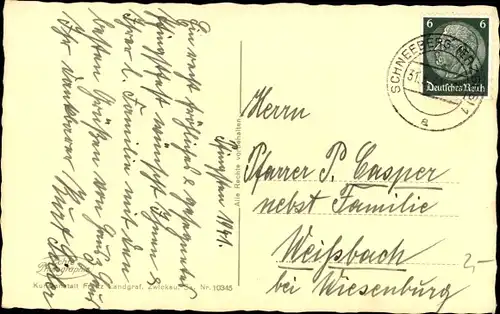 Pfingsten 1941.
Ein recht fröhliches & gesegnetes
Pfingstfest wünscht Ihnen &
Ihrer l. Familie mit den
besten Grüßen von Haus zu Haus
Ihr dankbarer Kurt
Alle Rechte vorbehalten
Echte
Photographie
Kunstanstalt Fritz Landgraf, Zwickau, Sa. Nr. 10345
SCHNEEBERG
31.
a
6 6
Deutsches Reich
Herrn
Pfarrer P. Casper
nebst Familie
Weißbach
bei Wiesenburg
2,-